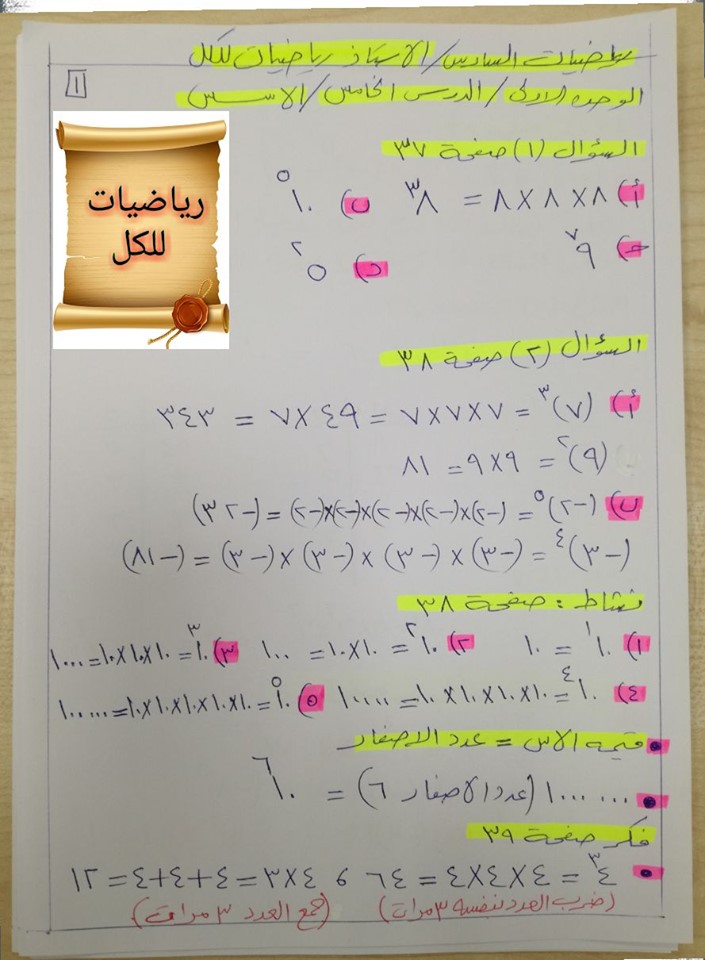 رياضيات السادس / الاستاذ رياضيات للكل
١
الوحده الاولى / الدرس الخامس / الاسس
رياضيات
للكل
السؤال (١) صفحة ٣٧
أ) ٨ × ٨ × ٨ = ٨³ ب) ١٠⁵
ج) ٩⁷ د) ٥²
السؤال (٢) صفحة ٣٨
أ) (٧)³ = ٧×٧×٧ = ٤٩×٧ = ٣٤٣
(٩)² = ٩×٩ = ٨١
ب) (-٢)⁵ = (-٢)×(-٢)×(-٢)×(-٢)×(-٢) = (-٣٢)
(-٣)⁴ = (-٣) × (-٣) × (-٣) × (-٣) = (-٨١)
نشاط : صفحة ٣٨
١) ١٠¹ = ١٠ ٢) ١٠² = ١٠×١٠ = ١٠٠ ٣) ١٠³ = ١٠×١٠×١٠ = ١٠٠٠
٤) ١٠⁴ = ١٠×١٠×١٠×١٠ = ١٠٠٠٠ ٥) ١٠⁵ = ١٠×١٠×١٠×١٠×١٠ = ١٠٠٠٠٠
قيمه الاس = عدد الاصفار
١٠٠٠٠٠٠ (عدد الاصفار ٦) = ١٠⁶
فكر صفحة ٣٩
٤³ = ٤×٤×٤ = ٦٤ و ٤×٣ = ٤+٤+٤ = ١٢
(ضرب العدد لنفسه ٣ مرات) (جمع العدد ٣ مرات)